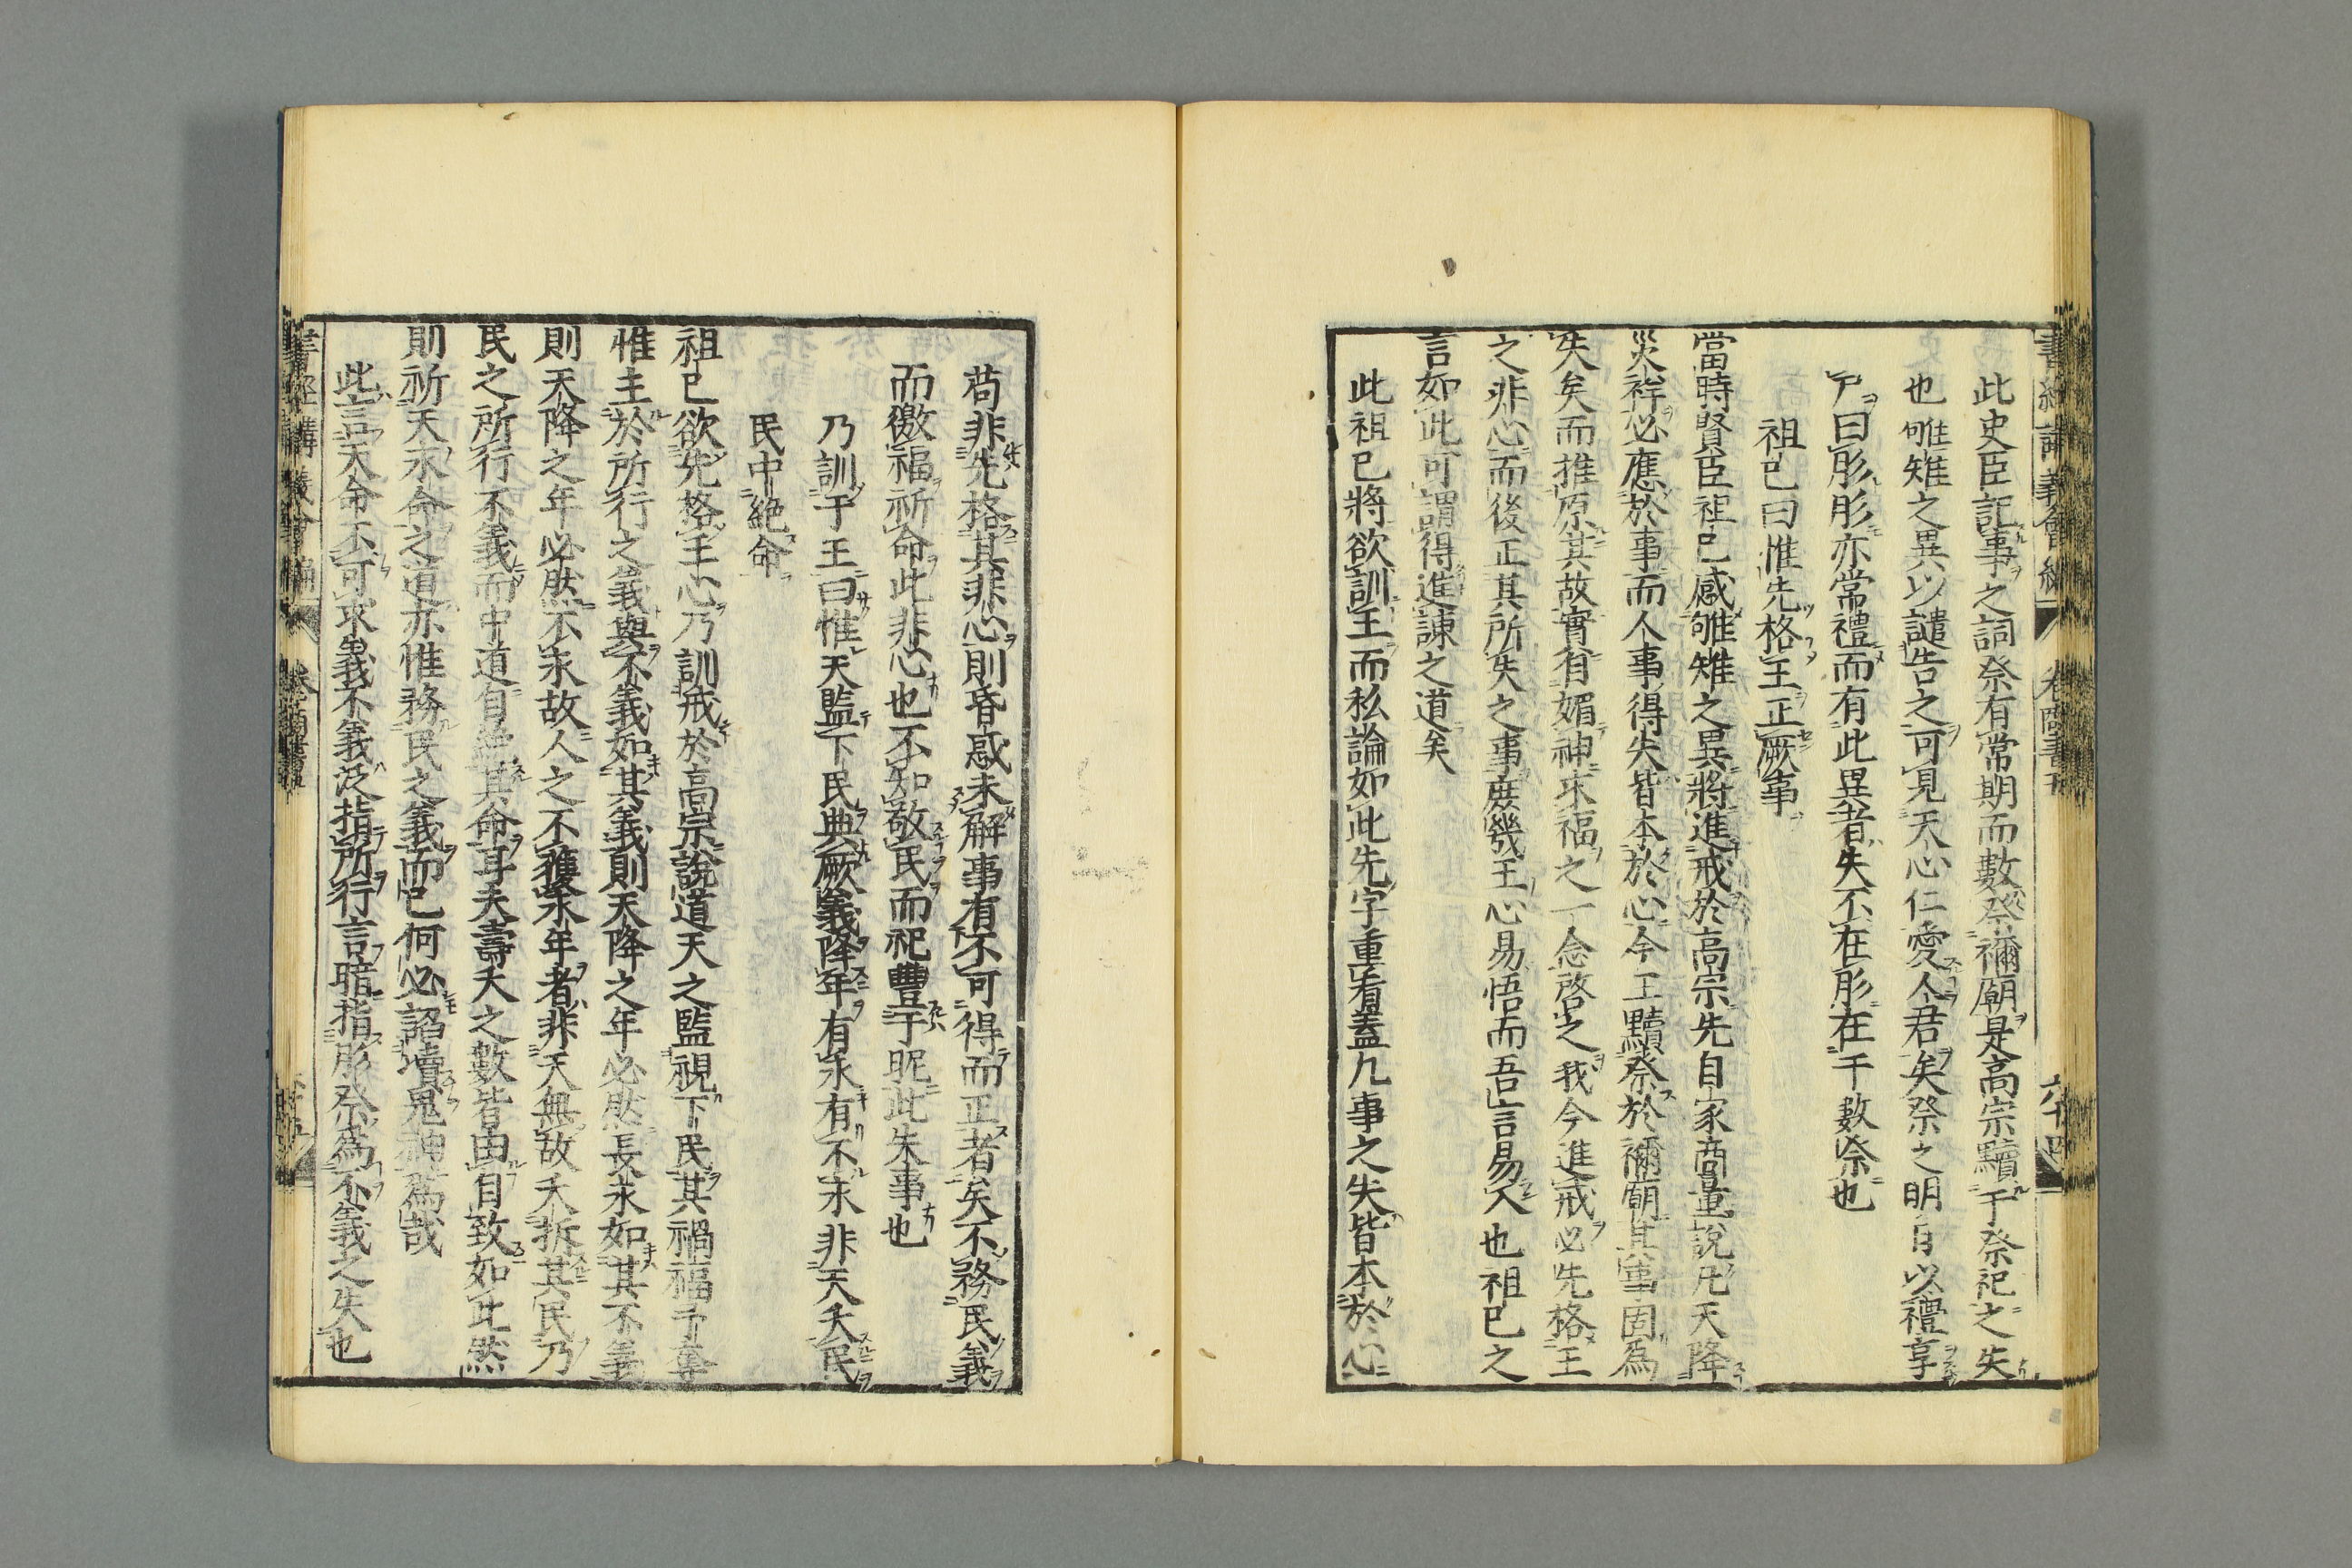 此史臣記事之詞祭有常期而數祭禰廟是高宗黷于祭祀之失
也雊雉之異以譴告之可見天心仁愛人君矣祭之明日以禮享
尸曰肜肜亦常禮而有此異者失不在肜在于數祭也
祖已曰惟先格王正厥事
當時賢臣祖已感雊雉之異將進戒於高宗先自家商量說凡天降
災祥必應於事而人事得失皆本於心今王黷祭於禰廟其事固爲
失矣而推原其故實有媚神求福之一念啓之我今進戒必先格王
之非心而後正其所失之事庶幾王心易悟而吾言易入也祖已之
言如此可謂得進諫之道矣
此祖已將欲訓王而私論如此先字重看蓋凡事之失皆本於心
苟非先格其非心則昏惑未解事有不可得而正者矣不務民義
而徼福祈命此非心也不知敬民而祀豐于昵此失事也
乃訓于王曰惟天監下民典厥義降年有永有不永非天夭民
民中絕命
祖已欲先格王心乃訓戒於高宗說道天之監視下民其禍福予奪
惟主於所行之義與不義如其義則天降之年必然長永如其不義
則天降之年必然不永故人之不獲永年者非天無故夭折其民乃
民之所行不義而中道自絕其命耳夫壽夭之數皆由自致如此然
則祈天永命之道亦惟務民之義而已何必諂瀆鬼神爲哉
此言天命不可求義不義泛指所行言暗指肜祭爲不義之失也
書經講義會編